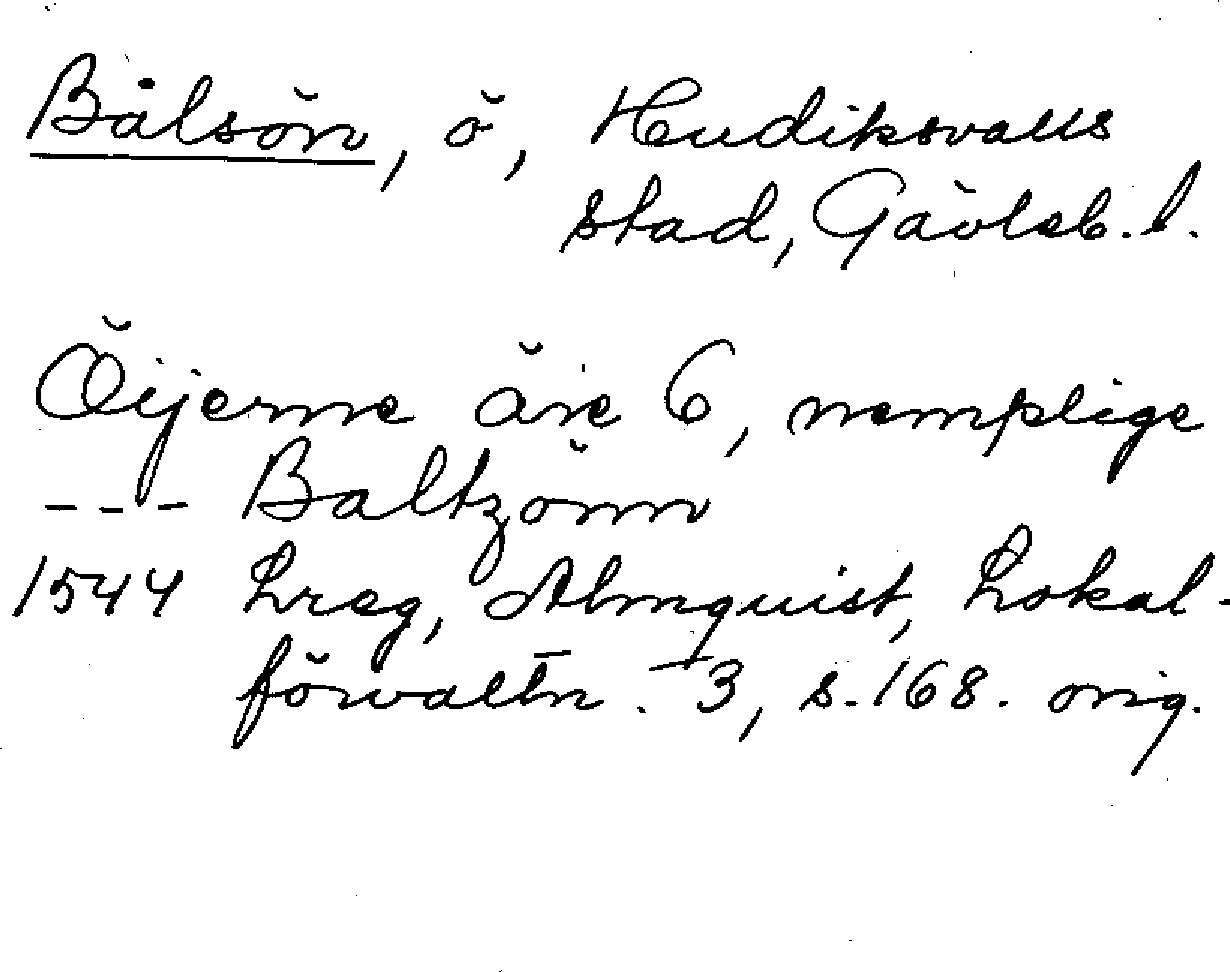 Bålsön, ö, Hudiksvalls
stad, Gävleb. l.
Öijerne äre 6, nemplige
--- Baltzönn
1544 Lreg, Almquist, Lokal-
förvaltn. 3, s. 168. orig.